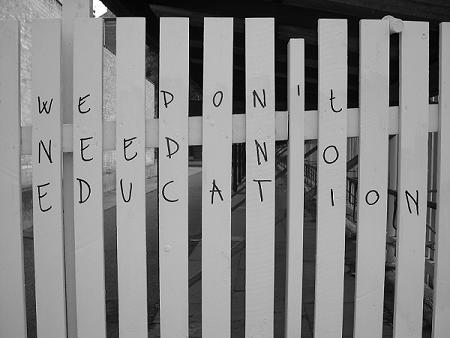 WE DON't
NEED NO
EDUCATION